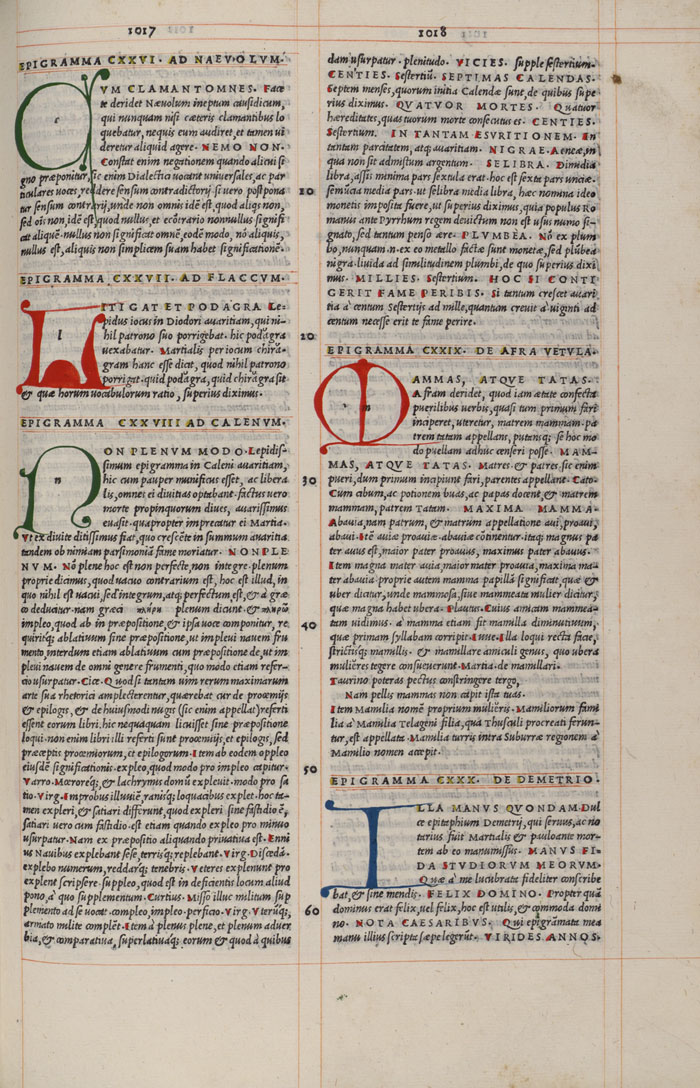 1017
EPIGRAMMA CXXVI. AD NAEVOLVM.
VM CLAMANT OMNES. Face
te deridet Næuolum ineptum causidicum,
qui nunquam nisi cæteris clamantibus lo
quebatur, nequis eum audiret, et tamen ui
deretur aliquid agere. NEMO NON.
Constat enim negationem quando alicui si
gno præponitur, sic enim Dialectici uocant uniuersales, ac par
ticulares uoces, reddere sensum contradictorij. si uero postpona
tur sensum contrarij, unde non omnis idē est, quod aliqs non,
sed oīs non, idē est quod nullus, et ecōtrario nonnullus signifi
cat aliquē. nullus non significat omnē, eodē modo, nō aliquis,
nullus est, aliquis non simplicem suam habet significationē.
EPIGRAMMA CXXVII. AD FLACCVM.
l
ITIGAT ET PODAGRA. Le-
pidus iocus in Diodori auaritiam, qui ni-
hil patrono suo porrigebat. hic podagra
uexabatur. Martialis per iocum chira-
gram hanc esse dicit, quod nihil patrono
porrigat. quid podagra, quid chiragra sit
& quæ horum uocabulorum ratio, superius diximus.
EPIGRAMMA CXXVIII AD CALENVM.
n
ON PLENVM MODO. Lepidis-
simum epigramma in Caleni auaritiam,
hic cum pauper munificus esset, ac libera
lis, omnes ei diuitias optabant. factus uero
morte propinquorum diues, auarissimus
euasit. quapropter imprecatur ei Martia.
Vt ex diuite ditissimus fiat, quo crescēte in summum auaritia
tandem ob nimiam parsimoniā fame moriatur. NON PLE
NVM. Nō plene hoc est non perfecte, non integre. plenum
proprie dicimus, quod uacuo contrarium est, hoc est illud, in
quo nihil est uacui, sed integrum, atq; perfectum est, & a græ
co deducitur. nam græci plenum dicunt. &
impleo, quod ab in præpositione, & ipsa uoce componitur, re
quiritq; ablatiuum sine præpositione, ut impleui nauem fru
mento, interdum etiam ablatiuum cum præpositione de, ut im
pleui nauem de omni genere frumenti, quo modo etiam refer-
cio usurpatur. Cice. Quod si tantam uim rerum maximarum
arte sua rhetorici amplecterentur, quærebat cur de proœmijs
& epilogis, & de huiusmodi nugis (sic enim appellat) referti
essent eorum libri. hic nequaquam licuisset sine præpositione
loqui. non enim libri illi referti sunt proœmijs, et epilogis, sed
præceptis proœmiorum, et epilogorum. Item ab eodem oppleo
eiusdē significationis. expleo, quod modo pro impleo capitur.
Varro. Mœroreq;, & lachrymis domū expleuit. modo pro sa
tio. Virg. Improbus illuuiē, ranisq; loquacibus explet. hoc ta-
men expleri, & satiari differunt, quod expleri sine fastidio ē,
satiari uero cum fastidio. est etiam quando expleo pro minuo
usurpatur. Nam ex præpositio aliquando priuatiua est. Enni
us Nauibus explebant sese, terrisq; replebant. Virg. Discedā.
explebo numerum, reddarq; tenebris. Veteres explenunt pro
explent scripsere. suppleo, quod est in deficientis locum aliud
pono, a quo supplementum. Curtius. Misso illuc militum sup
plemento ad se uocat. compleo, impleo. perficio. Virg. Vterūq;
armato milite complēt. Item a plenus plene, et plenum aduer
bia, & comparatiua, superlatiuaq; eorum & quod a quibus
10
20
30
40
50
60
1018
dam usurpatur. plenitudo. VICIES. supple sestertium.
CENTIES. Sestertiū. SEPTIMAS CALENDAS.
Septem menses, quorum initia Calendæ sunt, de quibus supe
rius diximus. QVATVOR MORTES. Quatuor
hæreditates, quas tuorum morte consecutus es. CENTIES.
Sestertium. IN TANTAM ESVRITIONEM. In
tantam parcitatem, atq; auaritiam. NIGRAE. Aeneæ, in
qua non sit admistum argentum. SELIBRA. Dimidia
libra, assis minima pars sextula erat. hoc est sexta pars unciæ.
semūcia media pars. ut selibra media libra, hæc nomina ideo
monetis imposita fuere, ut superius diximus, quia populus Ro
manus ante Pyrrhum regem deuictum non est usus numo si-
gnato, sed tantum penso ære. PLVMBEA. Nō ex plum
bo, nunquam n. ex eo metallo factæ sunt monetæ, sed plūbea
nigra. liuida ad similitudinem plumbi, de quo superius dixi
mus. MILLIES. Sestertium. HOC SI CONTI
GERIT FAME PERIBIS. Si tantum crescet auari
tia a centum Sestertijs ad mille, quantum creuit a uiginti ad
centum necesse erit te fame perire.
EPIGRAMMA CXXIX. DE AFRA VETVLA.
m
AMMAS, ATQVE TATAS.
Afram deridet, quod iam ætate confecta
puerilibus uerbis, quasi tum primum fari
inciperet, uteretur, matrem mammam. pa
trem tatam appellans, putansq; se hoc mo
do puellam adhuc censeri posse. MAM-
MAS, ATQVE TATAS. Matres. & patres. sic enim
pueri, dum primum incipiunt fari, parentes appellant. Cato.
Cum cibum, ac potionem buas, ac papas docent, & matrem
mammam, patrem Tatam. MAXIMA MAMMA.
Abauia, nam patrum, & matrum appellatione aui, proaui,
abaui. Itē auiæ proauiæ. abauiæ cōtinentur. itaq; magnus pa
ter auus est, maior pater proauus, maximus pater abauus.
Item magna mater auia, maior mater proauia, maxima ma-
ter abauia. proprie autem mamma papillā significat, quæ &
uber dicitur, unde mammosa, siue mammeata mulier dicitur,
quæ magna habet ubera. Plautus. Cuius amicam mammea-
tam uidimus. a mamma etiam fit mamilla diminutiuum,
quæ primam syllabam corripit. Iuue. Illa loqui recta facie,
strictisq; mamillis. & mamillare amiculi genus, quo ubera
mulieres tegere consueuerunt. Martia. de mamillari.
Taurino poteras pectus constringere tergo,
Nam pellis mammas non capit ista tuas.
Item Mamilia nomē proprium mulieris. Mamiliorum fami
lia a Mamilia Telageni filia, quā Thusculi procreati ferun-
tur, est appellata. Mamilia turris intra Suburræ regionem a
Mamilio nomen accepit.
EPIGRAMMA CXXX. DE DEMETRIO.
ILLA MANVS QVONDAM. Dul
ce epitaphium Demetrij, qui seruus, ac no
tarius fuit Martialis & pauloante mor-
tem ab eo manumissus. MANVS FI-
DA STVDIORVM MEORVM.
Quæ a me lucubrata fideliter conscribe
bat, & sine mendis. FELIX DOMINO. Propter quā
dominus erat felix, uel felix, hoc est utilis, & commoda domi
no. NOTA CAESARIBVS. Qui epigrāmata mea
manu illius scripta sæpe legerūt. VIRIDES ANNOS.